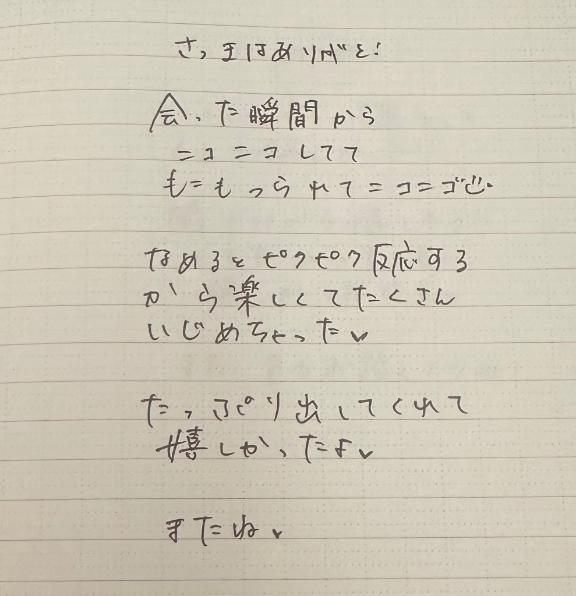 さっきはありがと!
会った瞬間から
ニコニコしてて
もニもつられてニコニコ
なめるとピクピク反応する
から楽しくてたくさん
いじめちゃった♥
たっぷり出してくれて
嬉しかったよ♥
またね♥